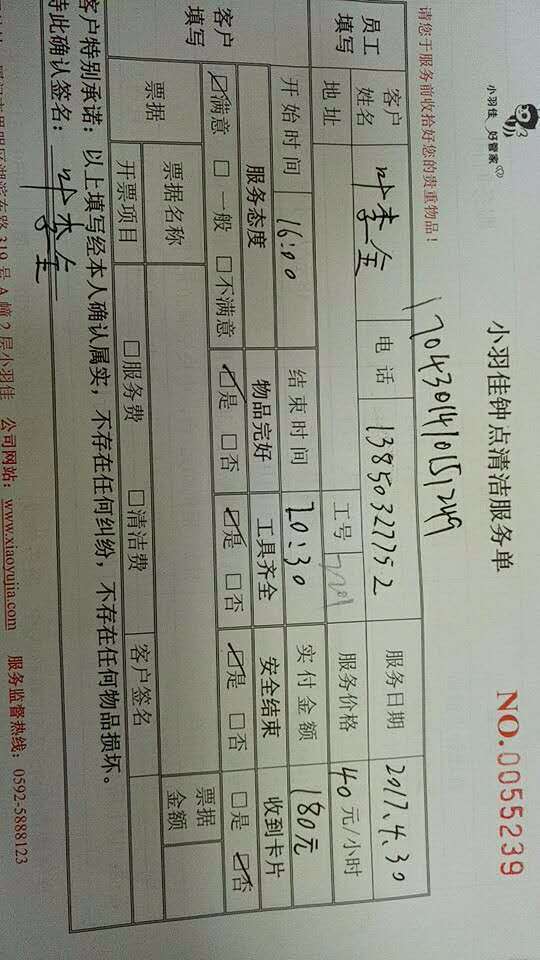 小羽佳 好管家
小羽佳钟点清洁服务单
NO.0055239
请您于服务前收拾好您的贵重物品!
1704301410151249
员工填写 客户姓名 叶李金 电话 13850327752 服务日期 2017.4.30
地址 工号 服务价格 40元/小时
客户填写 开始时间 16:00 结束时间 20:30 实付金额 180元
服务态度 物品完好 工具齐全 安全结束 收到卡片
☑满意 □一般 □不满意 ☑是 □否 ☑是 □否 ☑是 □否 □是 ☑否
票据 票据名称 票据金额
开票项目 □服务费 □清洁费 客户签名
客户特别承诺:以上填写经本人确认属实,不存在任何纠纷,不存在任何物品损坏。
特此确认签名:叶李金
319号A幢2层小羽佳 公司网站:www.xiaoyujia.com 服务监督热线:0592-5888123